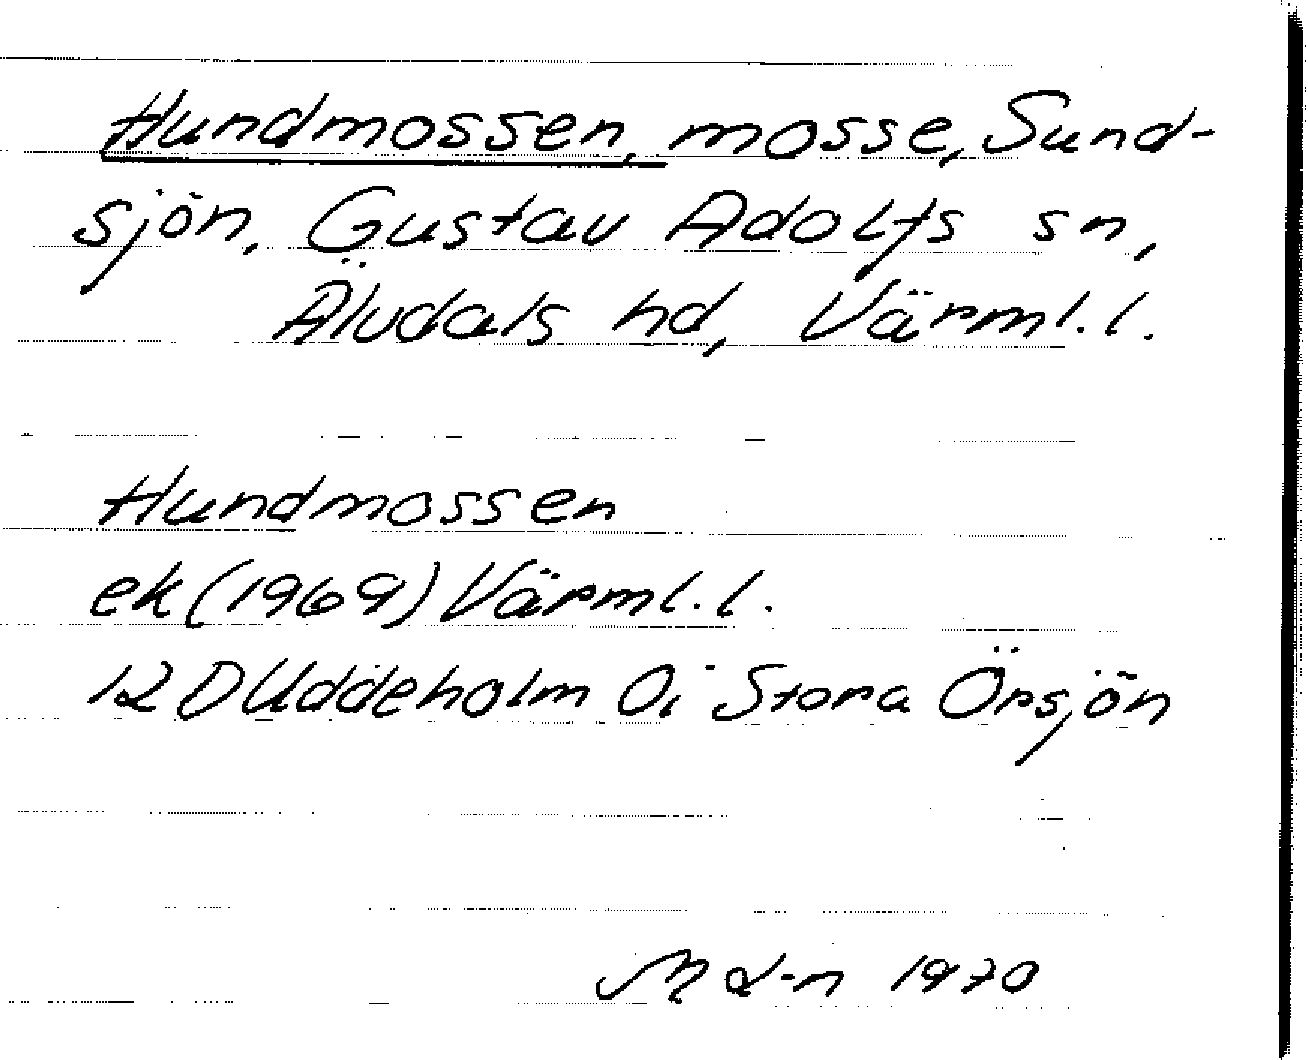 Hundmossen, mosse, Sund-
sjön, Gustav Adolfs sn,
Älvdals hd, Värml. l.
Hundmossen
ek (1969) Värml. l.
12D Uddeholm 0i Stora Örsjön
M d-n 1970